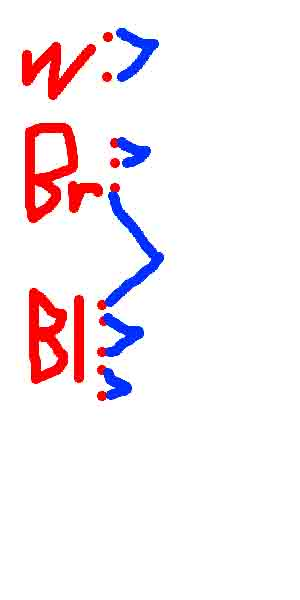 W
Br
Bl